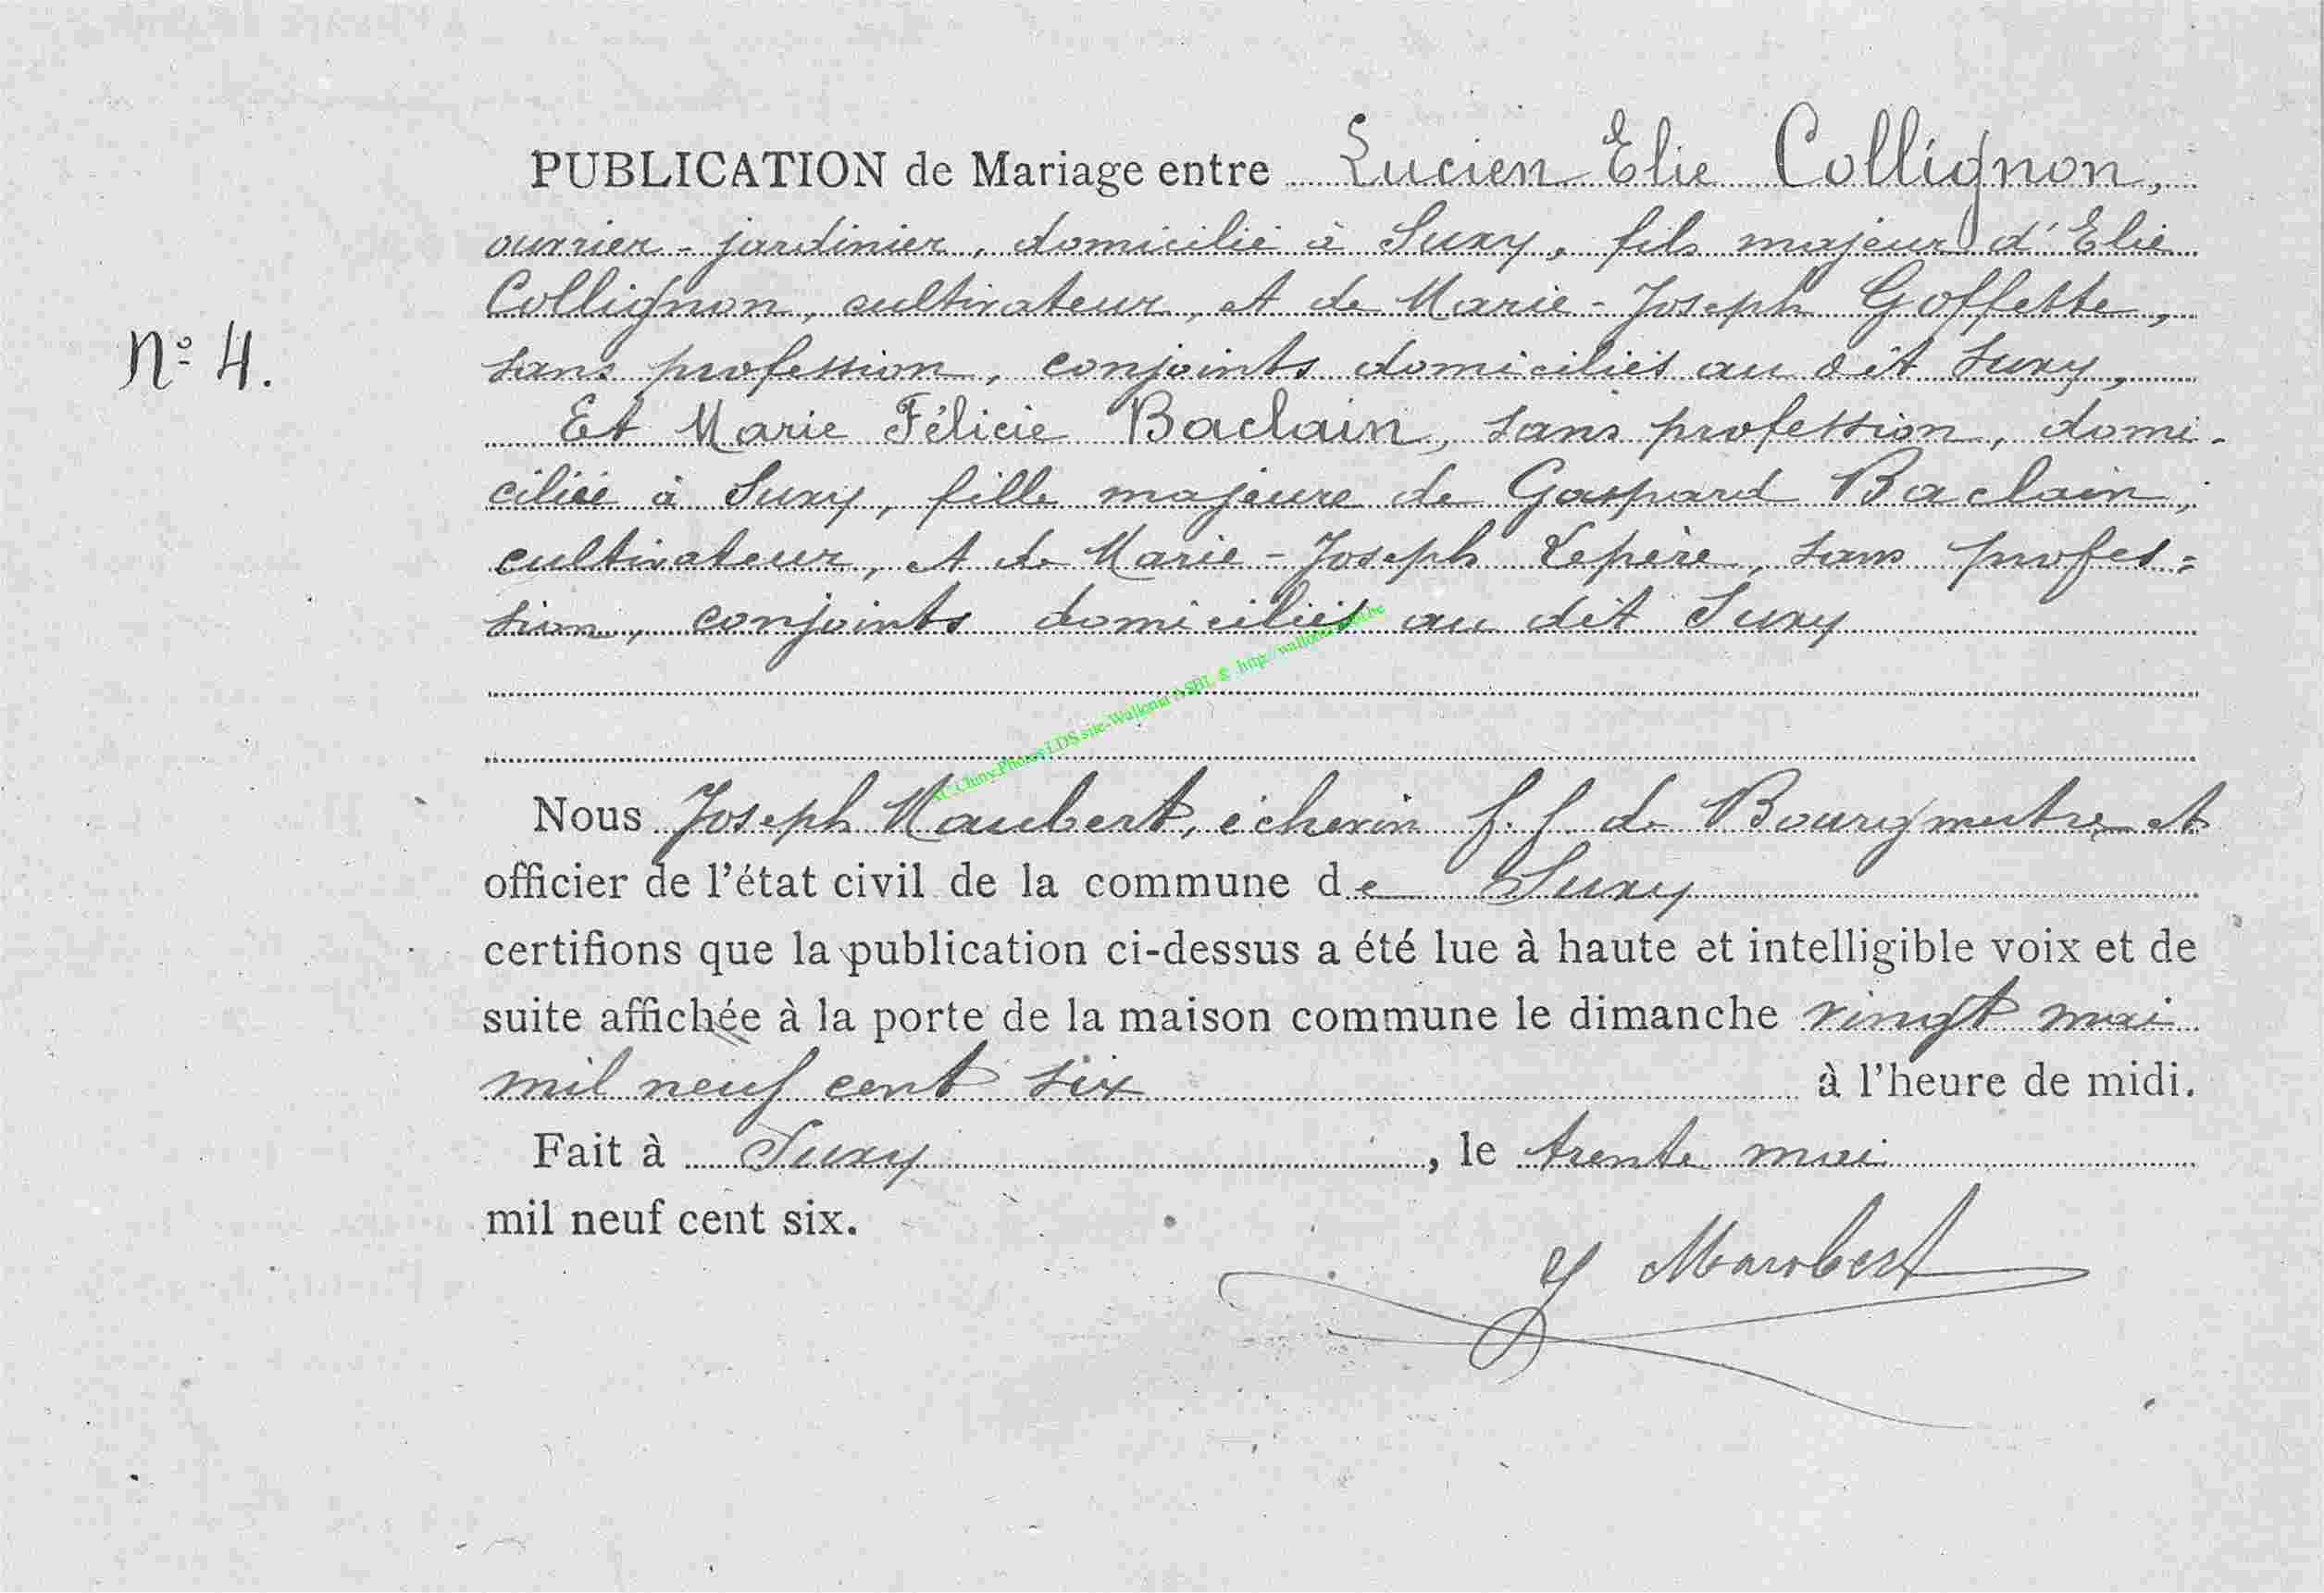 PUBLICATION de Mariage entre Lucien Elie Collignon,
ouvrier-jardinier, domicilié à Suxy, fils majeur d'Elie
Collignon, cultivateur, et de Marie-Joseph Goffette,
N° 4.
sans profession, conjoints domiciliés au dit Suxy,
Et Marie Félicie Baclain, sans profession, domi-
ciliée à Suxy, fille majeure de Gaspard Baclain,
cultivateur, et de Marie-Joseph Lepère, sans profes=
sion, conjoints domiciliés au dit Suxy
Nous Joseph Maubert, échevin f.f. de Bourgmestre et
officier de l'état civil de la commune de Suxy
certifions que la publication ci-dessus a été lue à haute et intelligible voix et de
suite affichée à la porte de la maison commune le dimanche vingt mai
mil neuf cent six à l'heure de midi.
Fait à Suxy, le trente mai
mil neuf cent six.
J Maubert
Photos LDS site-Wallonia ASBL © http: